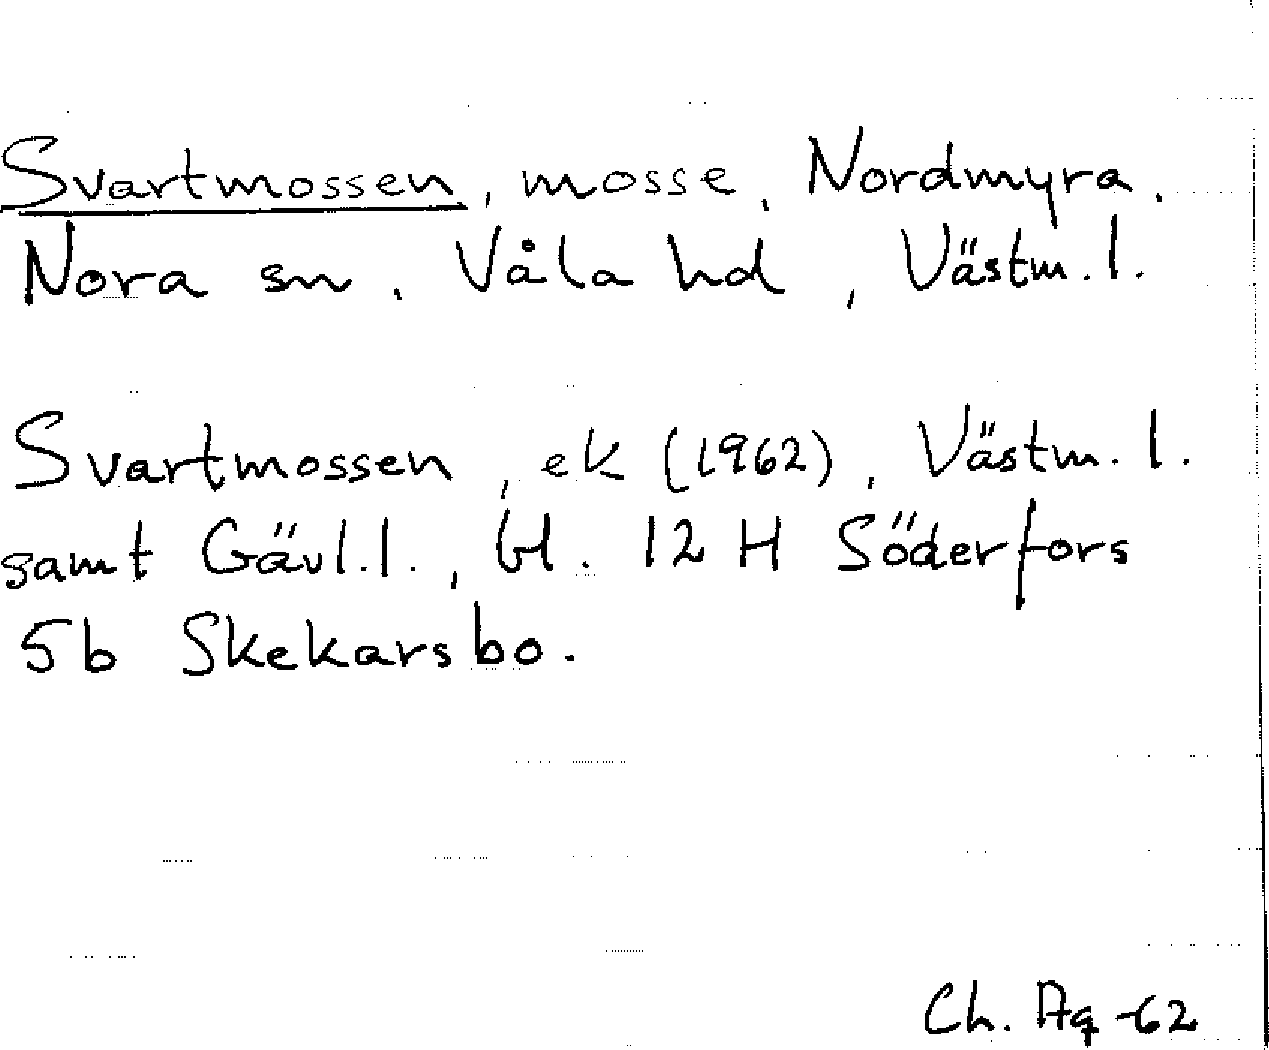 Svartmossen, mosse, Nordmyra,
Nora sn, Våla hd, Västm.l.
Svartmossen, ek (1962), Västm.l.
samt Gävl.l., bl. 12 H Söderfors
5b Skekarsbo.
Ch. Ag -62